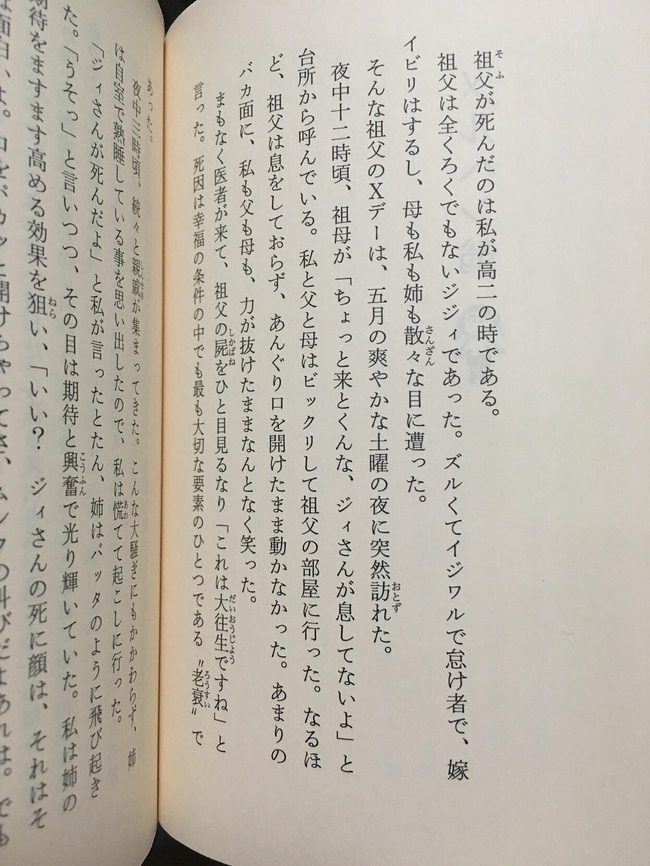 祖父が死んだのは私が高二の時である。
祖父は全くろくでもないジジィであった。ズルくてイジワルで怠け者で、嫁
イビリはするし、母も私も姉も散々な目に遭った。
そんな祖父のXデーは、五月の爽やかな土曜の夜に突然訪れた。
夜中十二時頃、祖母が「ちょっと来とくんな、ジィさんが息してないよ」と
台所から呼んでいる。私と父と母はビックリして祖父の部屋に行った。なるほ
ど、祖父は息をしておらず、あんぐり口を開けたまま動かなかった。あまりの
バカ面に、私も父も母も、力が抜けたままなんとなく笑った。
まもなく医者が来て、祖父の屍をひと目見るなり「これは大往生ですね」と
言った。死因は幸福の条件の中でも最も大切な要素のひとつである〝老衰〟で
あった。
夜中三時頃、続々と親戚が集まってきた。こんな大騒ぎにもかかわらず、姉
は自室で熟睡している事を思い出したので、私は慌てて起こしに行った。
「ジィさんが死んだよ」と私が言ったとたん、姉はバッタのように飛び起き
た。「うそっ」と言いつつ、その目は期待と興奮で光り輝いていた。私は姉の
期待をますます高める効果を狙い、「いい？ ジィさんの死に顔は、それはそ
面白いよ。口をパカッと開けちゃってさ、ムンクの叫びだよあれは。でも